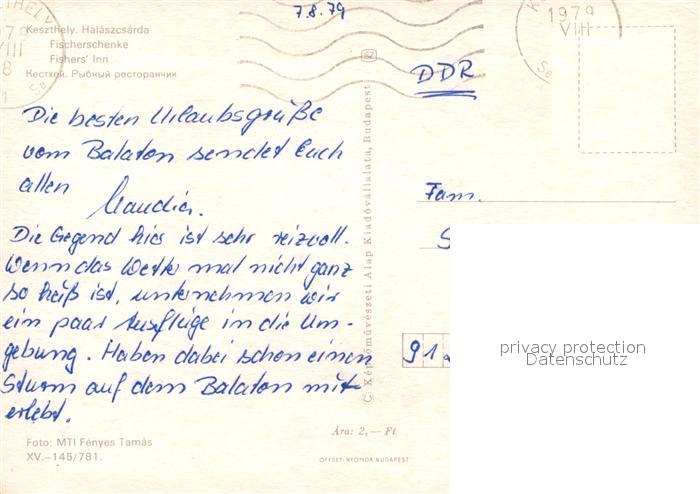 7.8.79
1979
VIII
Keszthely. Halászcsárda
Fischerschenke
Fishers' Inn
Кестхей. Рыбный ресторанчик
DDR
Die besten Urlaubsgrüße
vom Balaton sendet Euch
allen
Claudia.
Die Gegend hier ist sehr reizvoll.
Wenn das Wetter mal nicht ganz
so heiß ist, unternehmen wir
ein paar Ausflüge in die Um-
gebung. Haben dabei schon einen
Sturm auf dem Balaton mit-
erlebt.
Fam.
91
© Képzőművészeti Alap Kiadóvállalata, Budapest
privacy protection
Datenschutz
Ára: 2,— Ft
Foto: MTI Fényes Tamás
XV.–145/781.
OFFSET-NYOMDA BUDAPEST